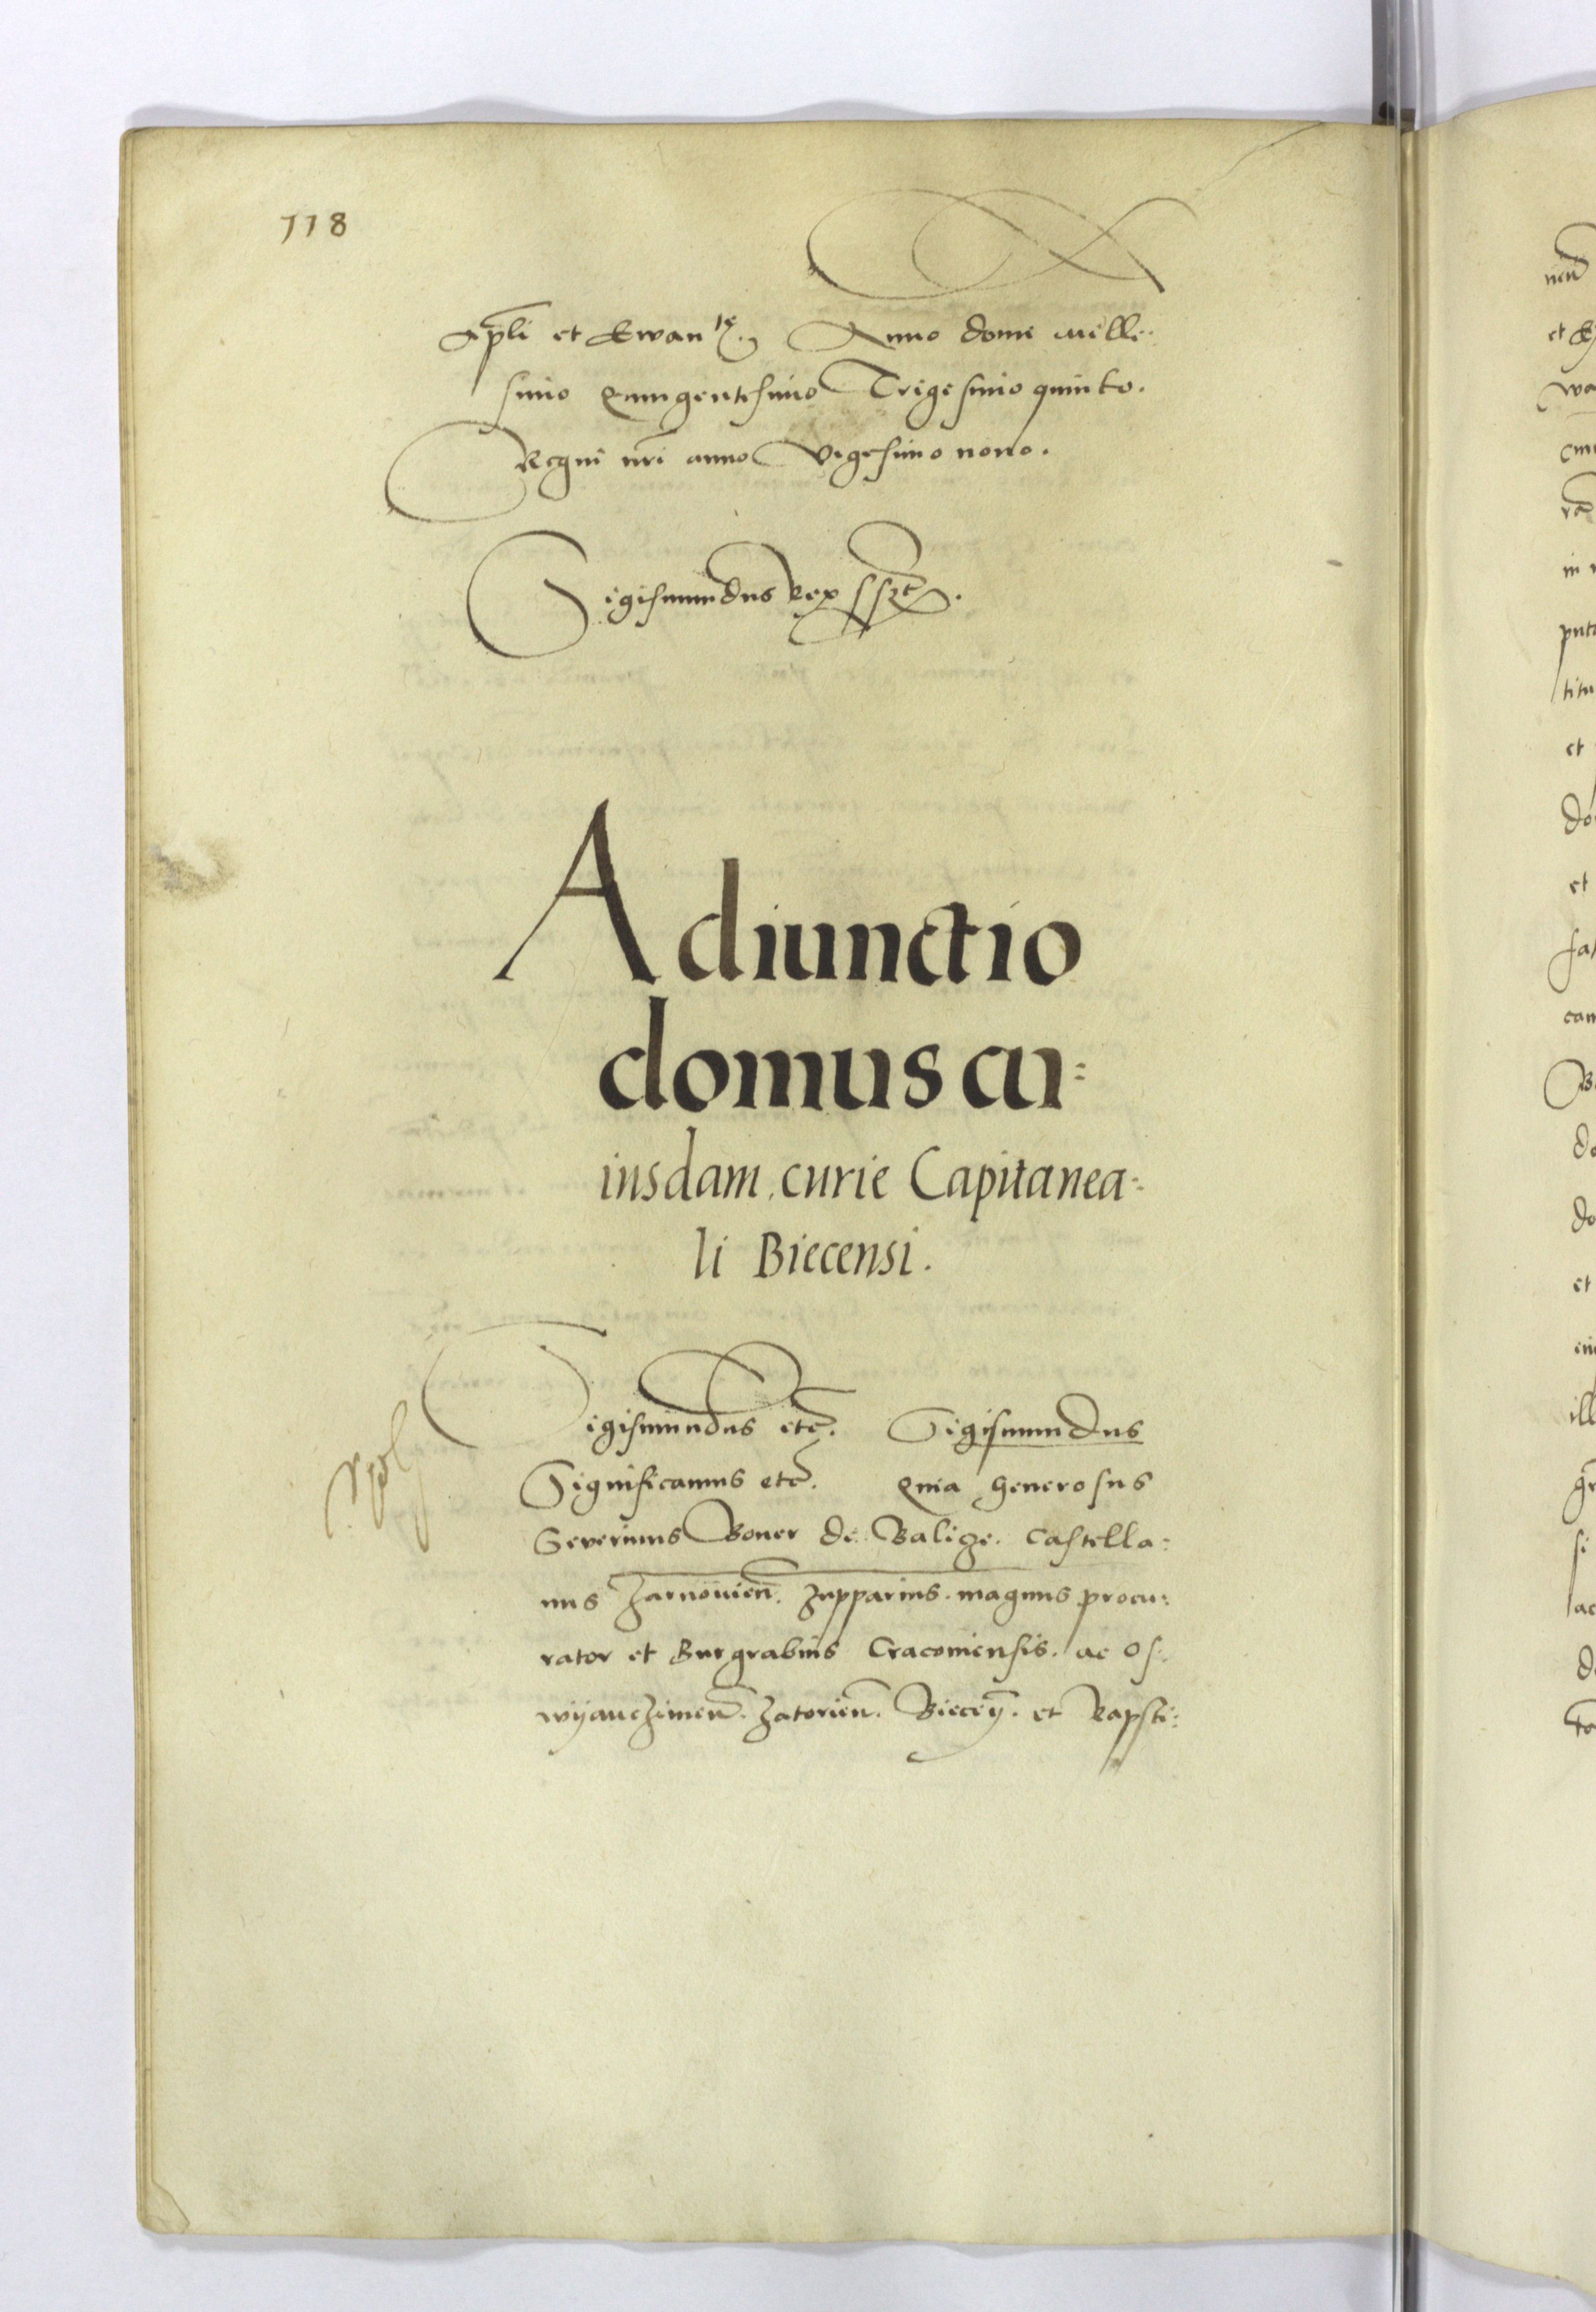 118
Apli et Ewante. Anno domi mille-
simo Quingentesimo Trigesimo quinto.
Regni nri anno Vigesimo nono.
Sigismundus Rex sszt.
Adiunctio
domus cu=
iusdam curie Capitanea=
li Biecensi.
Sigismundus etc. Sigismundus
Significamus etc. Quia Generosus
Severinus Boner de Balicze. Castella=
nus Zarnouien. Zupparius. magnus procu=
rator et Burgrabius Cracouiensis. ac Os=
wyanczimen. Zatorien. Biecen. et Rapsti=